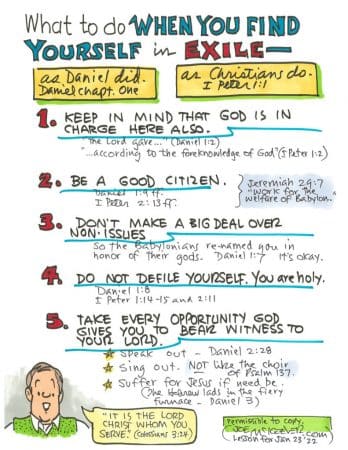 What to do WHEN YOU FIND
YOURSELF in EXILE—
as Daniel did.
Daniel chapt. One
as Christians do.
I Peter 1:1
1. KEEP IN MIND THAT GOD IS IN
CHARGE HERE ALSO.
"The Lord gave..." (Daniel 1:2)
"...according to the foreknowledge of God" (I Peter 1:2)
2. BE A GOOD CITIZEN.
Daniel 1:9 ff.
I Peter 2:13 ff.
Jeremiah 29:7
"work for the
welfare of Babylon."
3. DON'T MAKE A BIG DEAL OVER
NON-ISSUES
So the Babylonians re-named you in
honor of their gods. Daniel 1:7 It's okay.
4. DO NOT DEFILE YOURSELF. You are holy.
Daniel 1:8
I Peter 1:14-15 and 2:11
5. TAKE EVERY OPPORTUNITY GOD
GIVES YOU TO BEAR WITNESS TO
YOUR LORD.
Speak out - Daniel 2:28
Sing out. NOT like the choir
of Psalm 137.
Suffer for Jesus if need be.
(The Hebrew lads in the fiery
furnace - Daniel 3)
"IT IS THE LORD
CHRIST WHOM YOU
SERVE." (Colossians 3:24)
Permissible to copy.
JOEMCKEEVER.COM
Lesson for Jan 23 '22